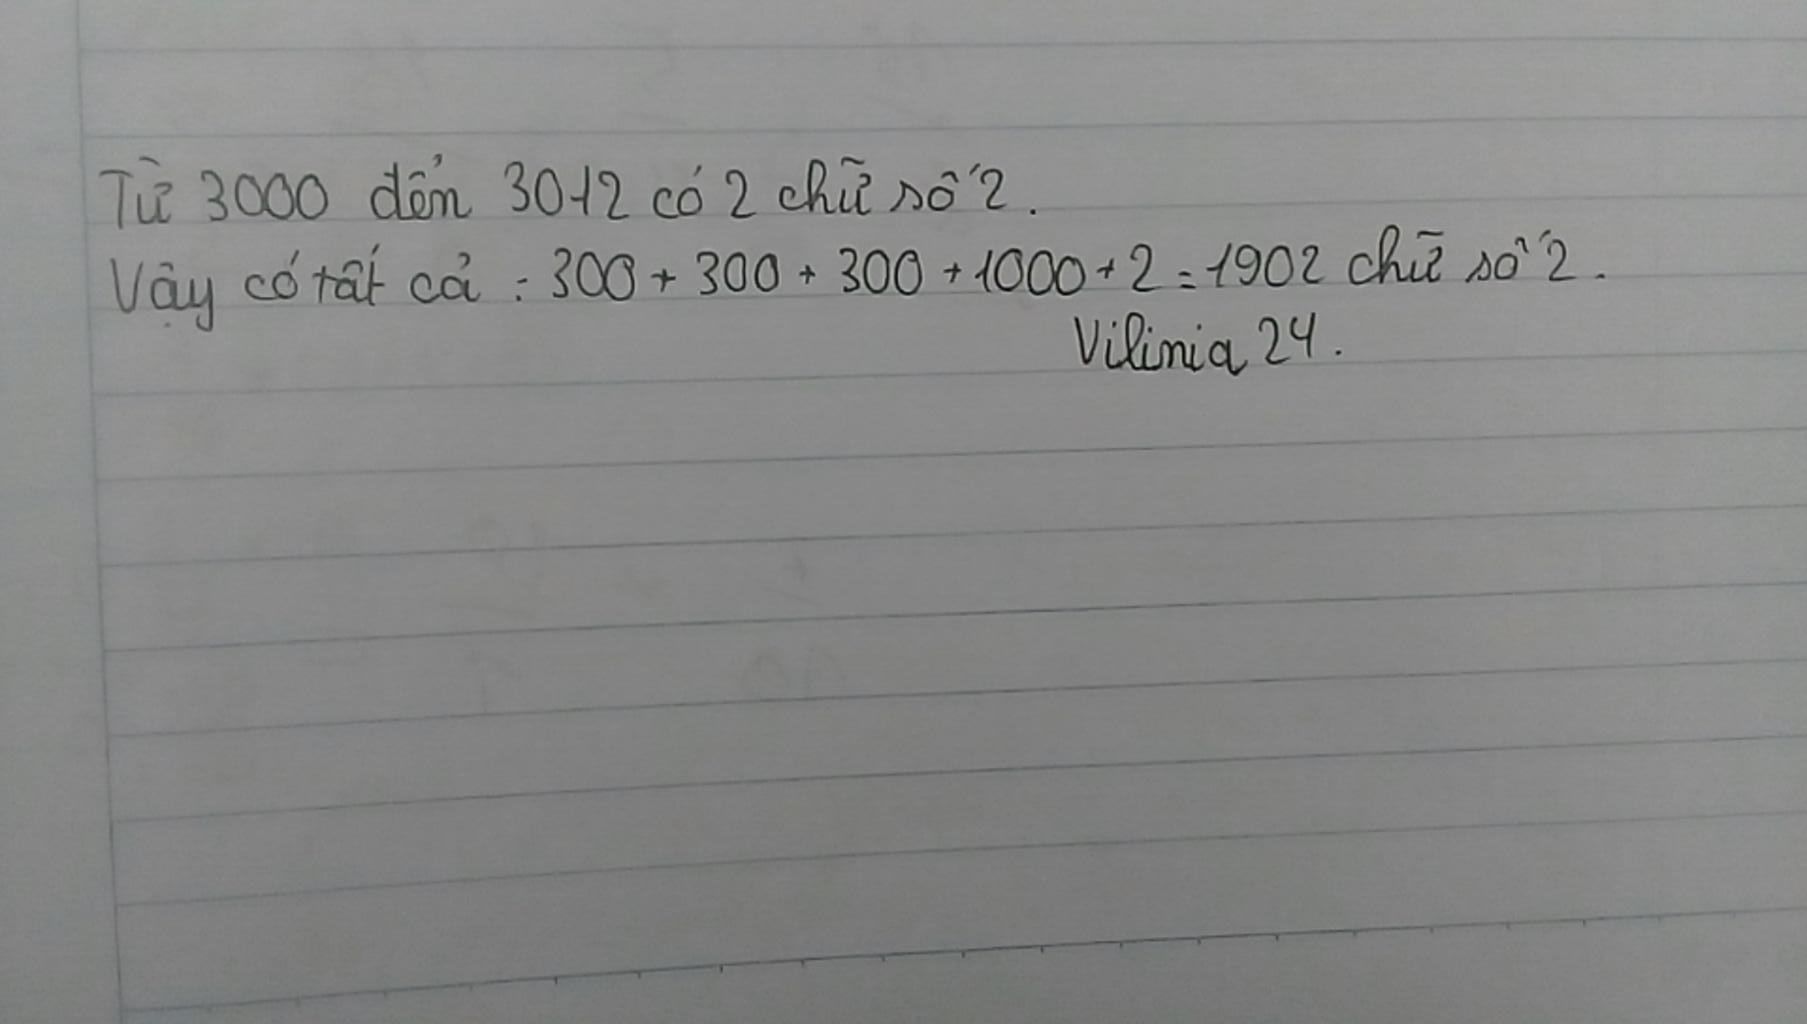 Từ 3000 đển 3012 có 2 chữ số 2.
Vậy có tất cả : 300 + 300 + 300 + 1000 + 2 = 1902 chữ số 2.
Vilinia 24.